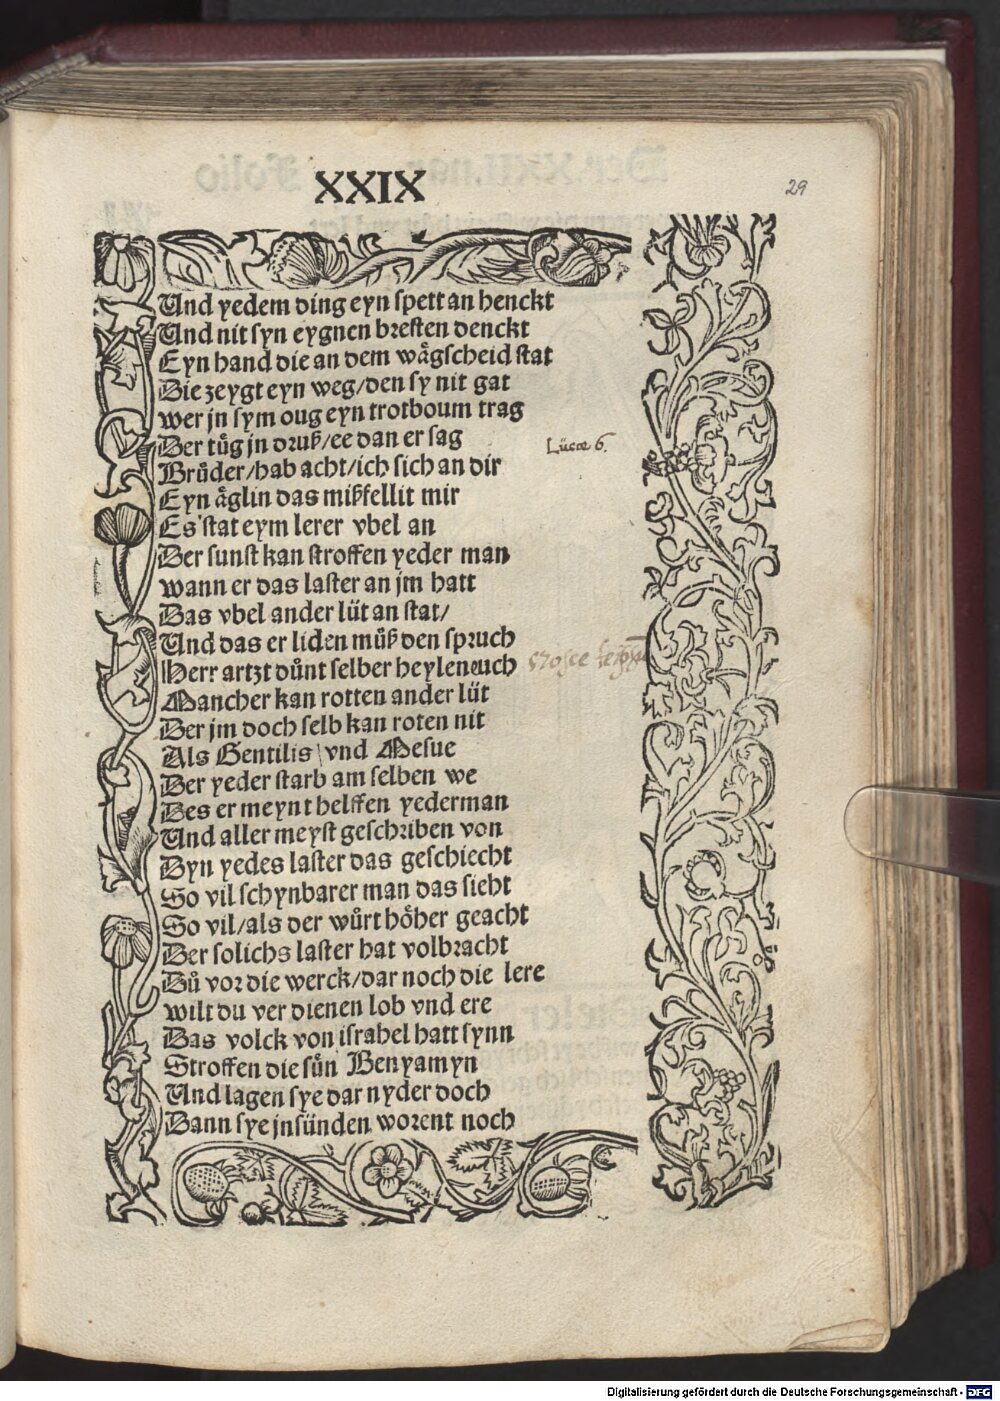 XXIX
29
Und yedem ding eyn spett an henckt
Und nit syn eygnen bresten denckt
Eyn hand die an dem wågscheid stat
Die zeygt eyn weg/den sy nit gat
wer jn sym oug eyn trotboum trag
Der tůg jn druß/ee dan er sag
Lucæ 6.
Brůder/hab acht/ich sich an dir
Eyn åglin das mißfellit mir
Es stat eym lerer vbel an
Der sunst kan stroffen yeder man
wann er das laster an jm hatt
Das vbel ander lüt an stat/
Und das er liden můß den spruch
Herr artzt důnt selber heylen euch
Nosce
Mancher kan rotten ander lüt
Der jm doch selb kan roten nit
Als Gentilis vnd Mesue
Der yeder starb am selben we
Des er meynt helffen yederman
Und aller meyst geschriben von
Dyn yedes laster das geschiecht
So vil schynbarer man das sieht
So vil/als der würt höher geacht
Der solichs laster hat volbracht
Dů vor die werck/dar noch die lere
wilt du ver dienen lob vnd ere
Das volck von israhel hatt synn
Stroffen die sůn Benyamyn
Und lagen sye dar nyder doch
Dann sye jnsünden worent noch
Digitalisierung gefördert durch die Deutsche Forschungsgemeinschaft - DFG